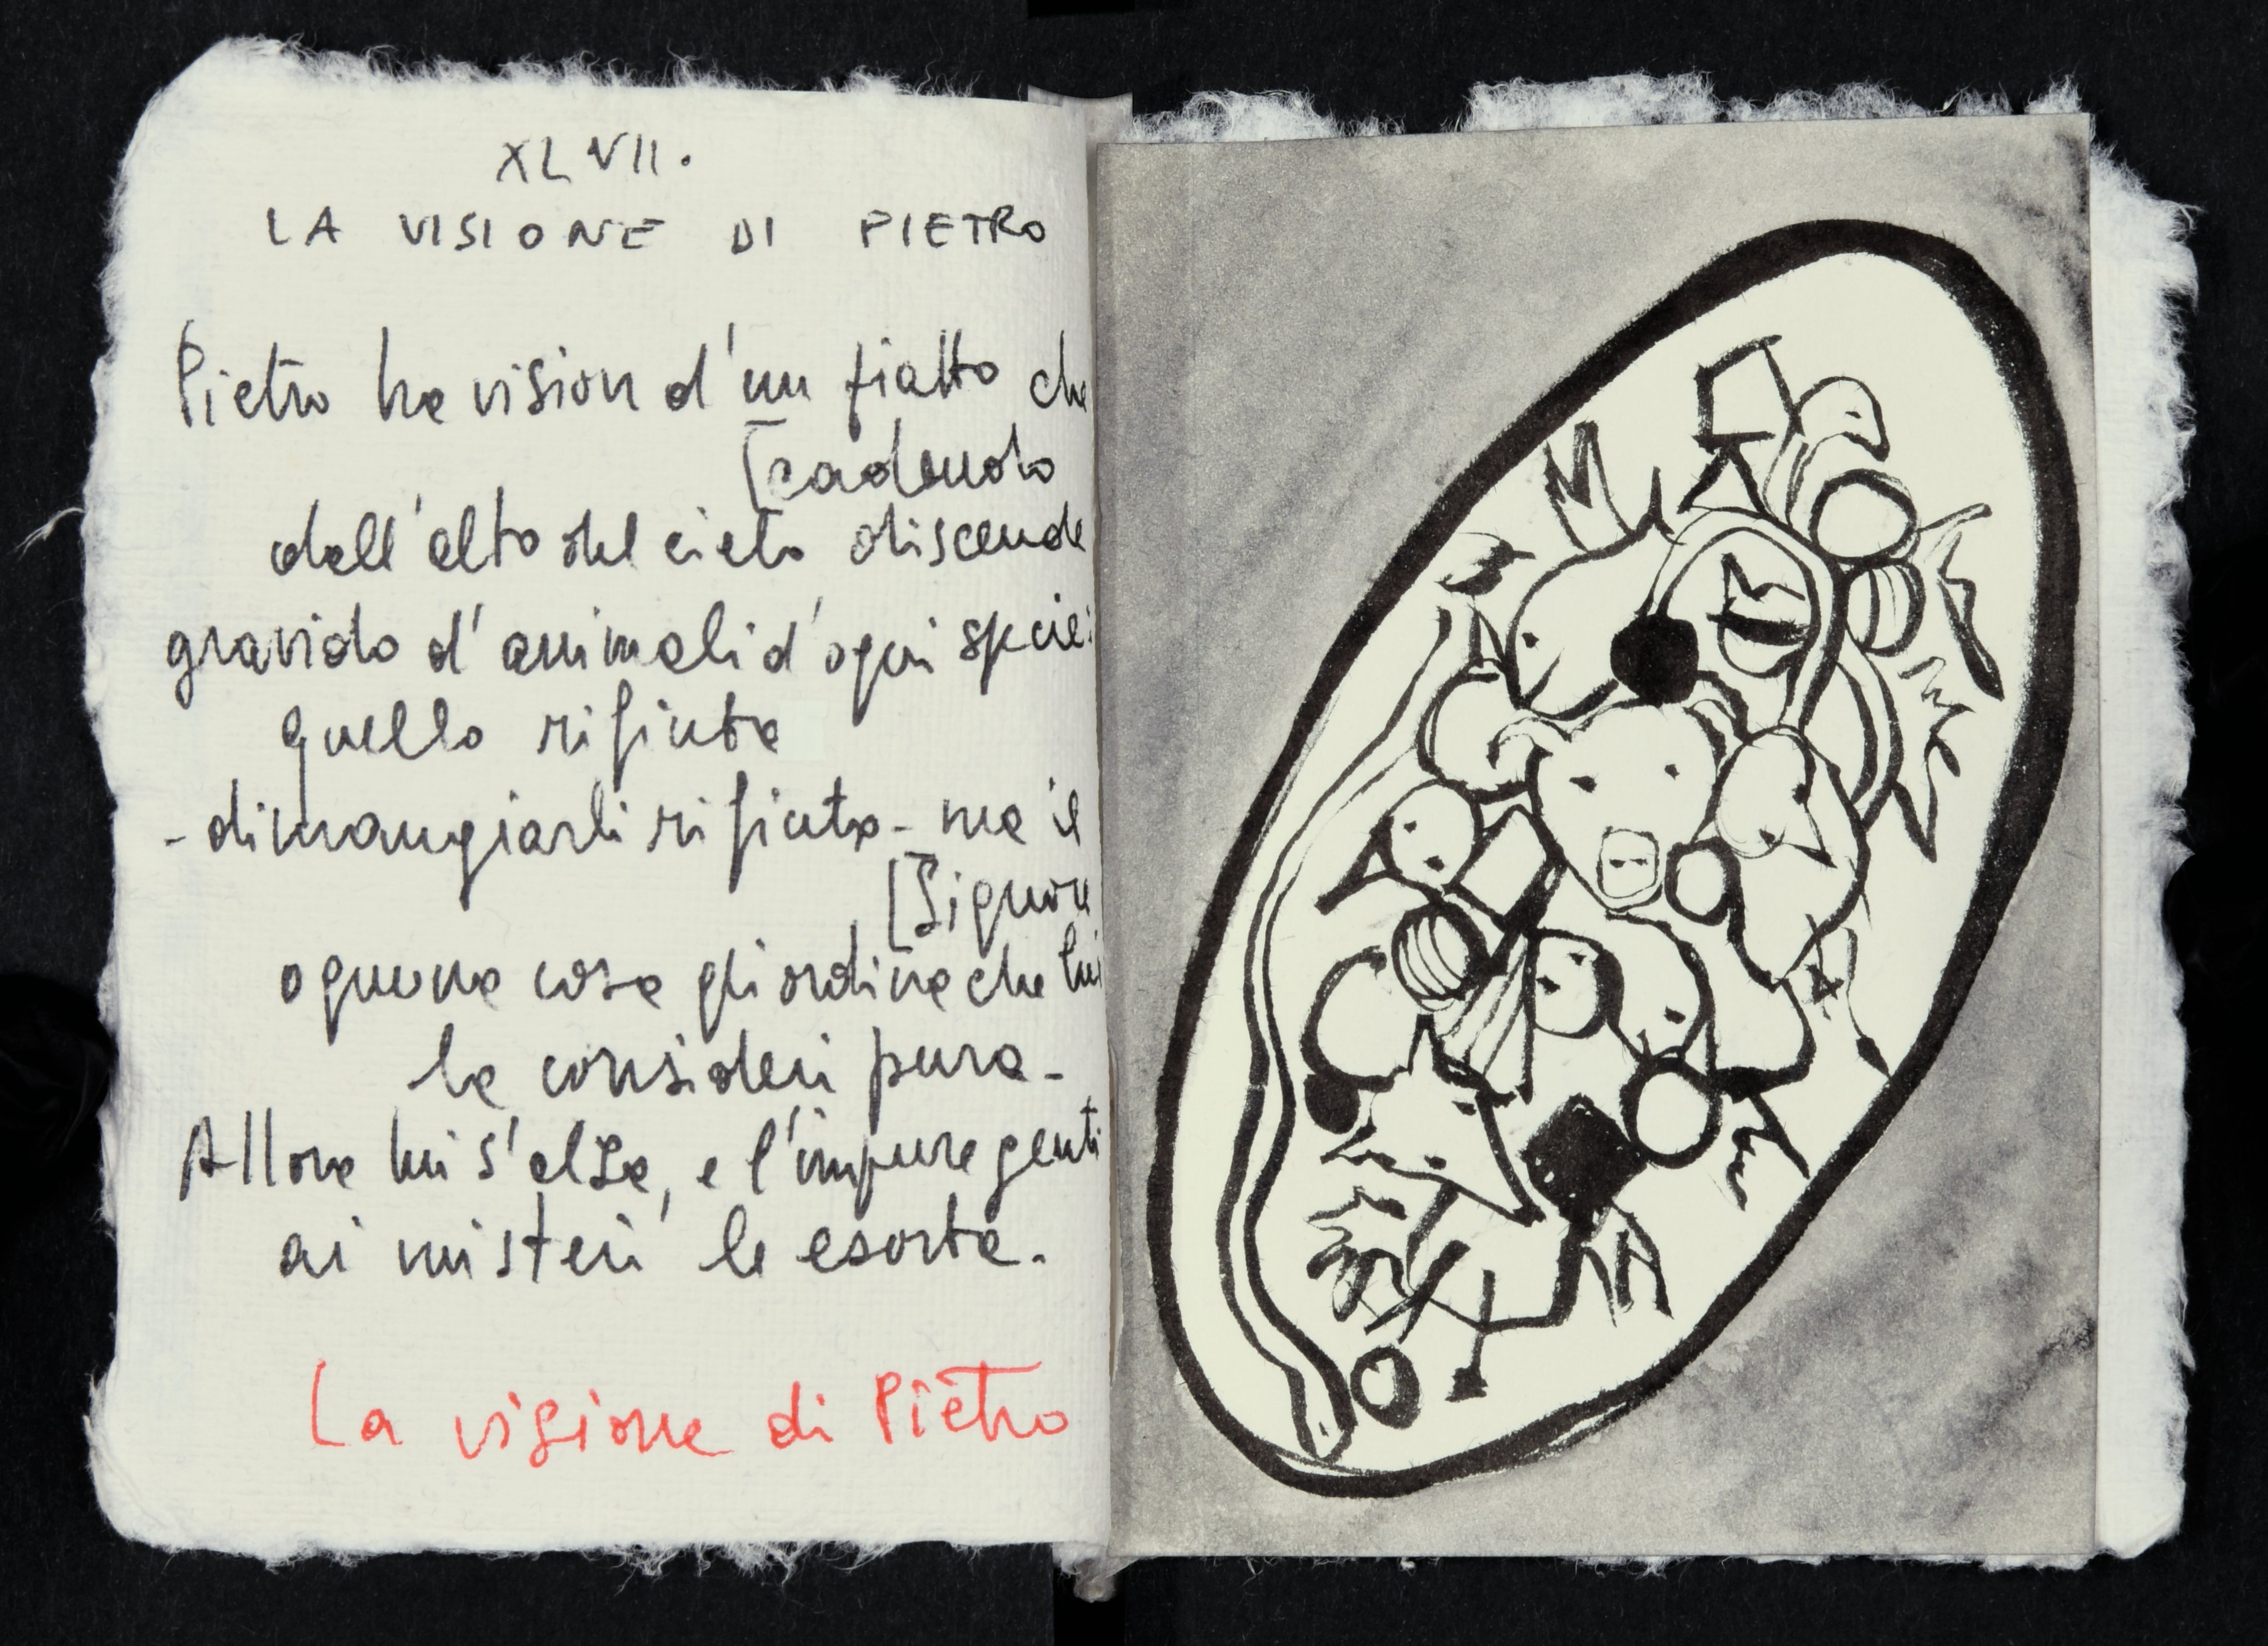 XLVII.
LA VISIONE DI PIETRO
Pietro ha vision d'un piatto che
[cadendo
dall'alto del cielo discende
gravido d'animali d'ogni specie:
quello rifiuta
- di mangiarli rifiuta - ma il
[Signore
ognuna cosa gli ordina che lui
la consideri pura -
Allora lui s'alza, e l'impure genti
ai misteri le esorta.
La visione di Pietro